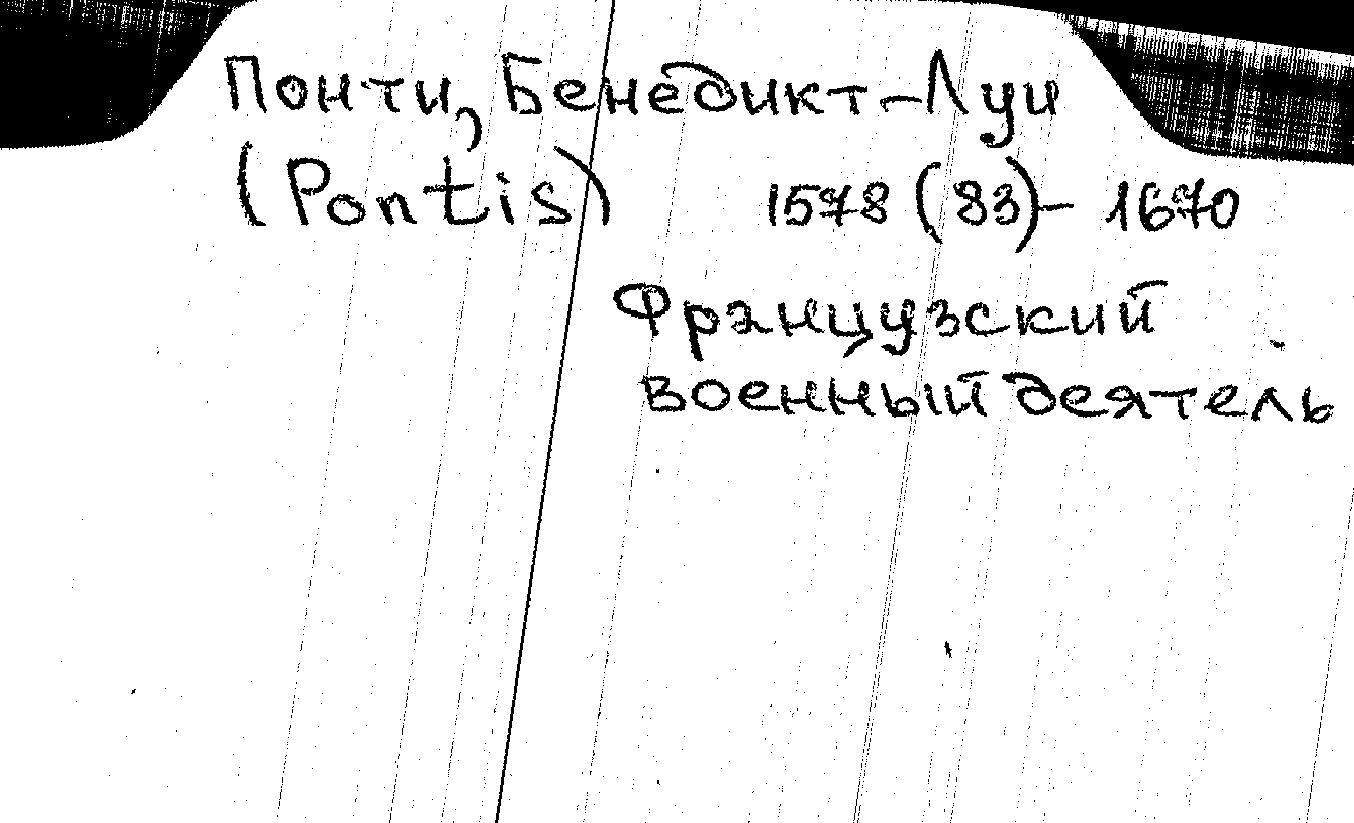 Понти, Бенедикт-Луи
(Pontis) 1578 (83)- 1670
Французский
военный деятель